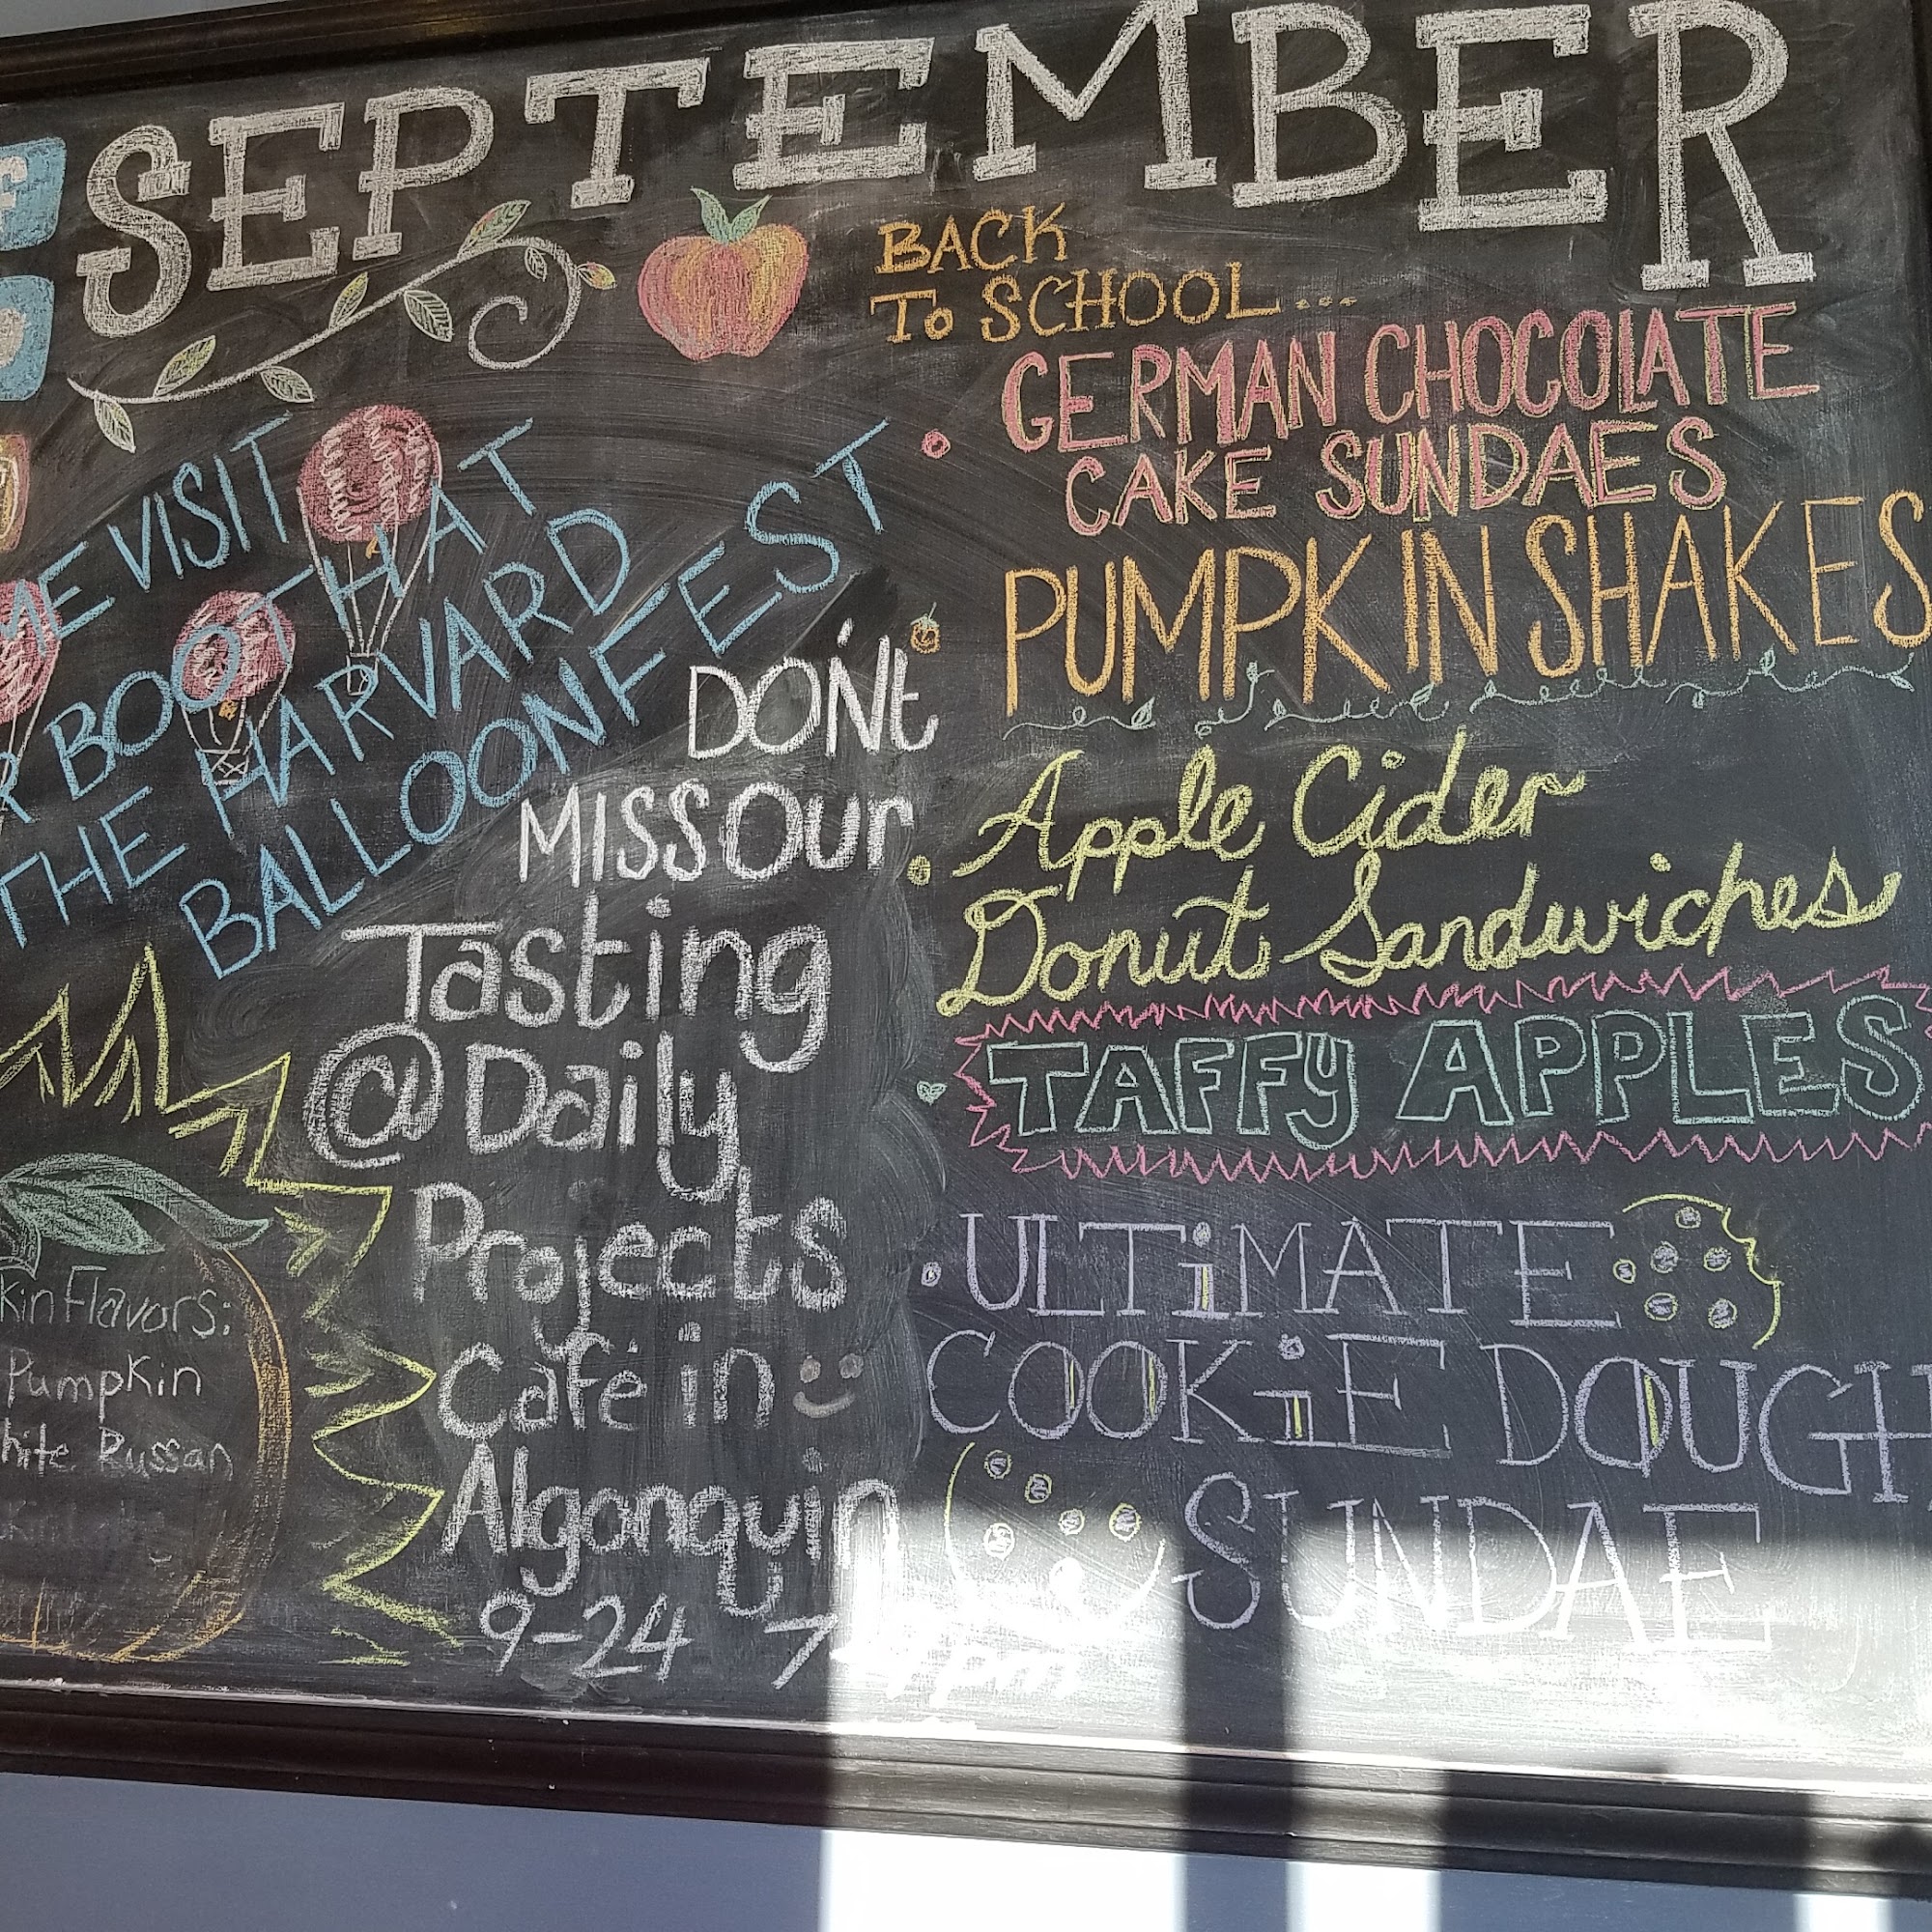 SEPTEMBER
BACK
To SCHOOL...
GERMAN CHOCOLATE
CAKE SUNDAES
PUMPKIN SHAKES
Apple Cider
Donut Sandwiches
TAFFY APPLES
ULTiMATE
COOKiE DOUGH
SUNDAE
ME VISIT
R BOOTH AT
THE HARVARD
BALLOON FEST
DON't
MISS Our
Tasting
@ Daily
Projects
Café in
Algonquin
9-24 7
pm
kin Flavors:
Pumpkin
hite Russan